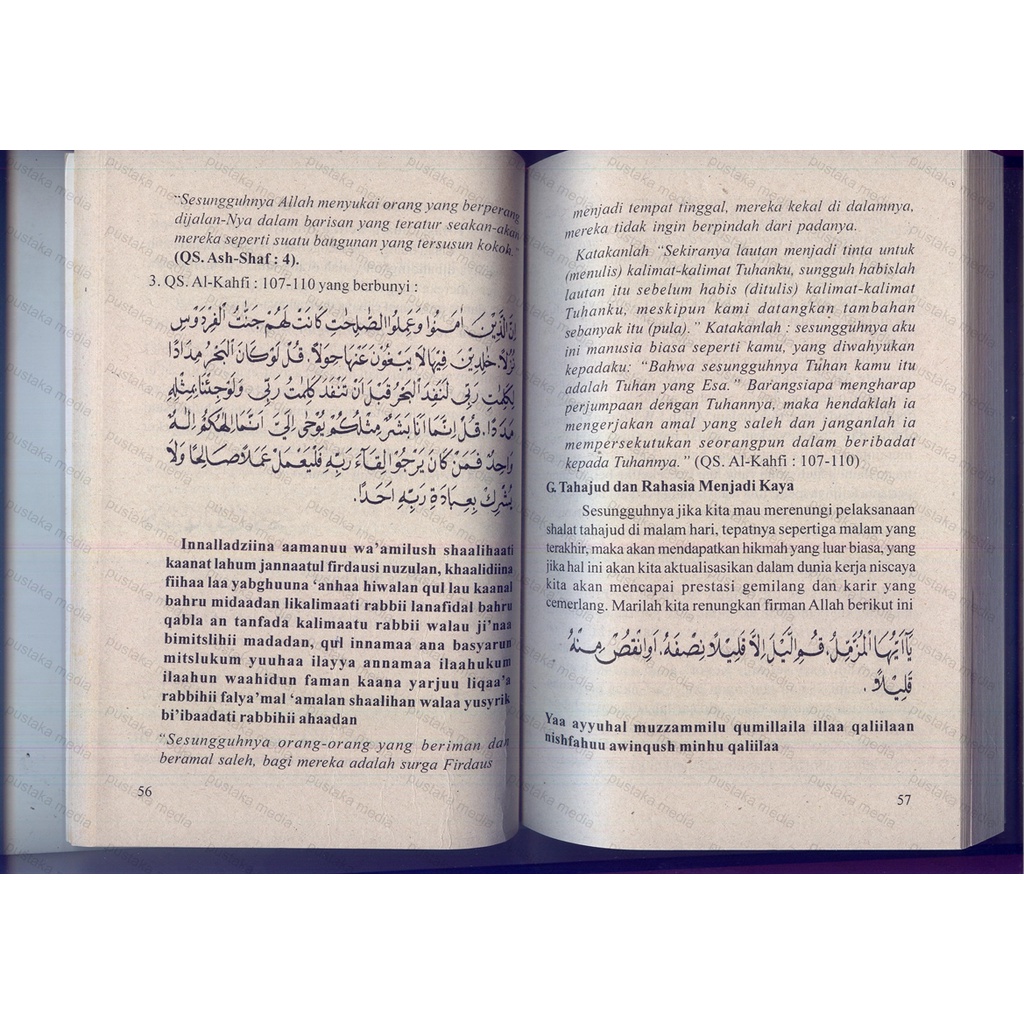 "Sesungguhnya Allah menyukai orang yang berperang
dijalan-Nya dalam barisan yang teratur seakan-akan
mereka seperti suatu bangunan yang tersusun kokoh."
(QS. Ash-Shaf : 4).
3. QS. Al-Kahfi : 107-110 yang berbunyi :
اِنَّ الَّذِيْنَ اٰمَنُوْا وَعَمِلُوا الصّٰلِحٰتِ كَانَتْ لَهُمْ جَنّٰتُ الْفِرْدَوْسِ
نُزُلًا. خٰلِدِيْنَ فِيْهَا لَا يَبْغُوْنَ عَنْهَا حِوَلًا. قُلْ لَوْ كَانَ الْبَحْرُ مِدَادًا
لِكَلِمٰتِ رَبِّيْ لَنَفِدَ الْبَحْرُ قَبْلَ اَنْ تَنْفَدَ كَلِمٰتُ رَبِّيْ وَلَوْ جِئْنَا بِمِثْلِهٖ
مَدَدًا. قُلْ اِنَّمَا اَنَا بَشَرٌ مِثْلُكُمْ يُوْحٰى اِلَيَّ اَنَّمَا اِلٰهُكُمْ اِلٰهٌ
وَاحِدٌ فَمَنْ كَانَ يَرْجُوْا لِقَآءَ رَبِّهٖ فَلْيَعْمَلْ عَمَلًا صَالِحًا وَلَا
يُشْرِكْ بِعِبَادَةِ رَبِّهٖ اَحَدًا.
Innalladziina aamanuu wa'amilush shaalihaati
kaanat lahum jannaatul firdausi nuzulan, khaalidiina
fiihaa laa yabghuuna 'anhaa hiwalan qul lau kaanal
bahru midaadan likalimaati rabbii lanafidal bahru
qabla an tanfada kalimaatu rabbii walau ji'naa
bimitslihii madadan, qul innamaa ana basyarun
mitslukum yuuhaa ilayya annamaa ilaahukum
ilaahun waahidun faman kaana yarjuu liqaa'a
rabbihii falya'mal 'amalan shaalihan walaa yusyrik
bi'ibaadati rabbihii ahaadan
"Sesungguhnya orang-orang yang beriman dan
beramal saleh, bagi mereka adalah surga Firdaus
56
menjadi tempat tinggal, mereka kekal di dalamnya,
mereka tidak ingin berpindah dari padanya.
Katakanlah "Sekiranya lautan menjadi tinta untuk
(menulis) kalimat-kalimat Tuhanku, sungguh habislah
lautan itu sebelum habis (ditulis) kalimat-kalimat
Tuhanku, meskipun kami datangkan tambahan
sebanyak itu (pula)." Katakanlah : sesungguhnya aku
ini manusia biasa seperti kamu, yang diwahyukan
kepadaku: "Bahwa sesungguhnya Tuhan kamu itu
adalah Tuhan yang Esa." Barangsiapa mengharap
perjumpaan dengan Tuhannya, maka hendaklah ia
mengerjakan amal yang saleh dan janganlah ia
mempersekutukan seorangpun dalam beribadat
kepada Tuhannya." (QS. Al-Kahfi : 107-110)
G. Tahajud dan Rahasia Menjadi Kaya
Sesungguhnya jika kita mau merenungi pelaksanaan
shalat tahajud di malam hari, tepatnya sepertiga malam yang
terakhir, maka akan mendapatkan hikmah yang luar biasa, yang
jika hal ini akan kita aktualisasikan dalam dunia kerja niscaya
kita akan mencapai prestasi gemilang dan karir yang
cemerlang. Marilah kita renungkan firman Allah berikut ini
يَآاَيُّهَا الْمُزَّمِّلُ، قُمِ الَّيْلَ اِلَّا قَلِيْلًا نِصْفَهُ، اَوِانْقُصْ مِنْهُ
قَلِيْلًا.
Yaa ayyuhal muzzammilu qumillaila illaa qaliilaan
nishfahuu awinqush minhu qaliilaa
57
pustaka media